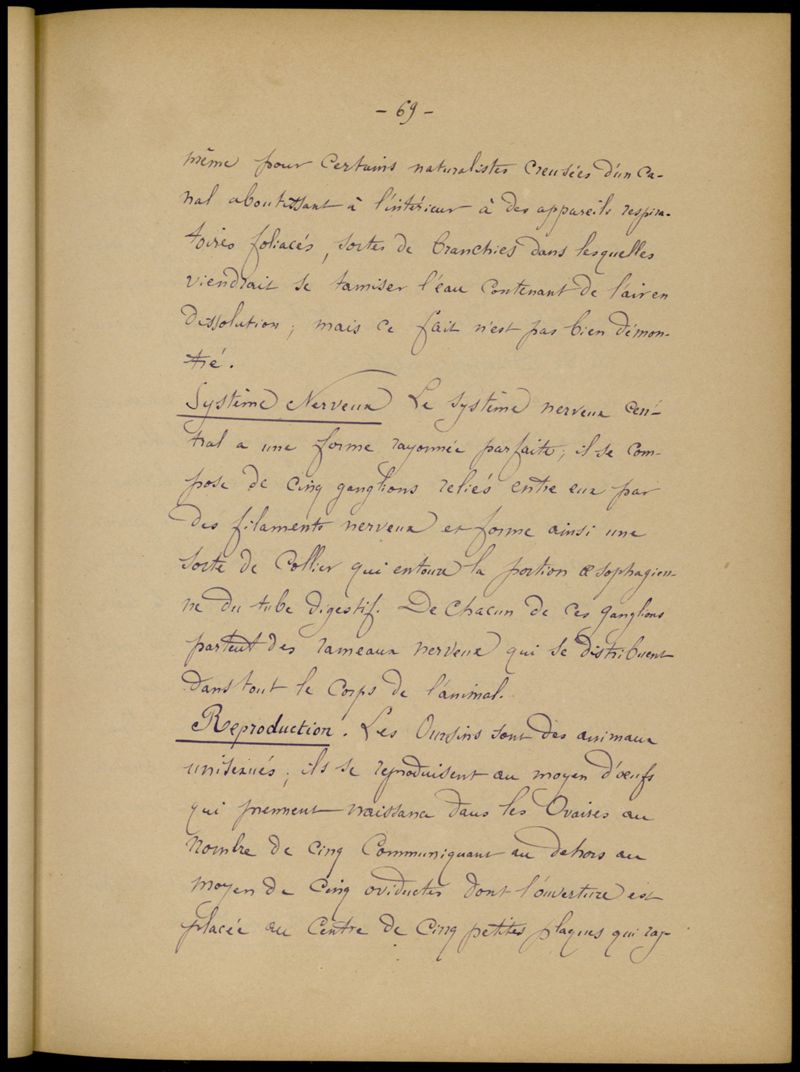 - 69 -
même pour certains naturalistes creusées d'un ca-
nal aboutissant à l'intérieur à des appareils respira-
toires foliacés, sortes de branchies dans lesquelles
viendrait se tamiser l'eau contenant de l'air en
dissolution; mais ce fait n'est pas bien démon-
tré.
Système Nerveux Le système nerveux cen-
tral a une forme rayonnée parfaite; il se com-
pose de cinq ganglions reliés entre eux par
des filaments nerveux et forme ainsi une
sorte de collier qui entoure la portion œsophagien-
ne du tube digestif. De chacun de ces ganglions
partent des rameaux nerveux qui se distribuent
dans tout le corps de l'animal.
Reproduction. Les Oursins sont des animaux
unisexués; ils se reproduisent au moyen d'œufs
qui prennent naissance dans les Ovaires au
nombre de cinq communiquant au dehors au
moyen de cinq oviductes dont l'ouverture est
placée au centre de cinq petites plaques qui rap-